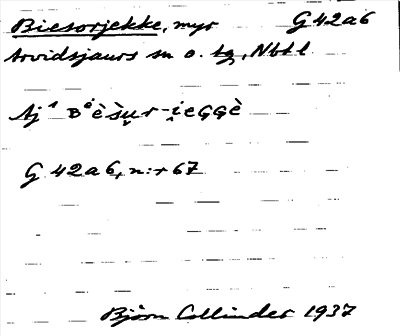 Biesorjekke, myr G 42 a 6
Arvidsjaurs sn o. tg, Nbtl
Aj¹ ʙᵉ̇èsu̬r-i̭eɢɢè
G 42 a 6, n:r 67
Björn Collinder 1937